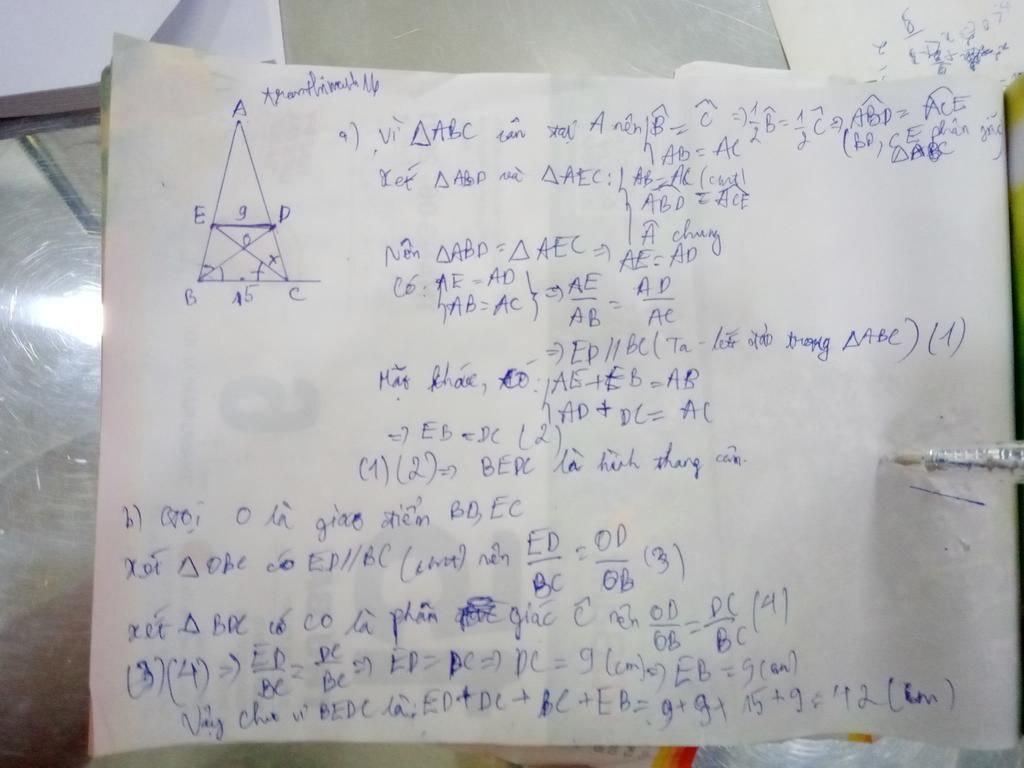 A
E
9
D
O
x
B
15
C
a) Vì △ABC cân tại A nên { B̂ = Ĉ ⇒ 1/2 B̂ = 1/2 Ĉ ⇒ ABD = ACE
AB = AC
(BD, CE phân giác
△ABC
Xét △ABD và △AEC: { AB = AC (cmt)
ABD = ACE
Â chung
Nên △ABD = △AEC ⇒ AE = AD
Có: { AE = AD
AB = AC } ⇒ AE/AB = AD/AC
⇒ ED // BC (Ta-lét đảo trong △ABC) (1)
Mặt khác, có: { AE + EB = AB
AD + DC = AC
⇒ EB = DC (2)
(1)(2) ⇒ BEDC là hình thang cân.
b) Gọi O là giao điểm BD, EC
Xét △OBC có ED // BC (cmt) nên ED/BC = OD/OB (3)
Xét △BDC có CO là phân giác Ĉ nên OD/OB = DC/BC (4)
(3)(4) ⇒ ED/BC = DC/BC ⇒ ED = DC ⇒ DC = 9 (cm) ⇒ EB = 9 (cm)
Vậy chu vi BEDC là: ED + DC + BC + EB = 9 + 9 + 15 + 9 = 42 (cm)